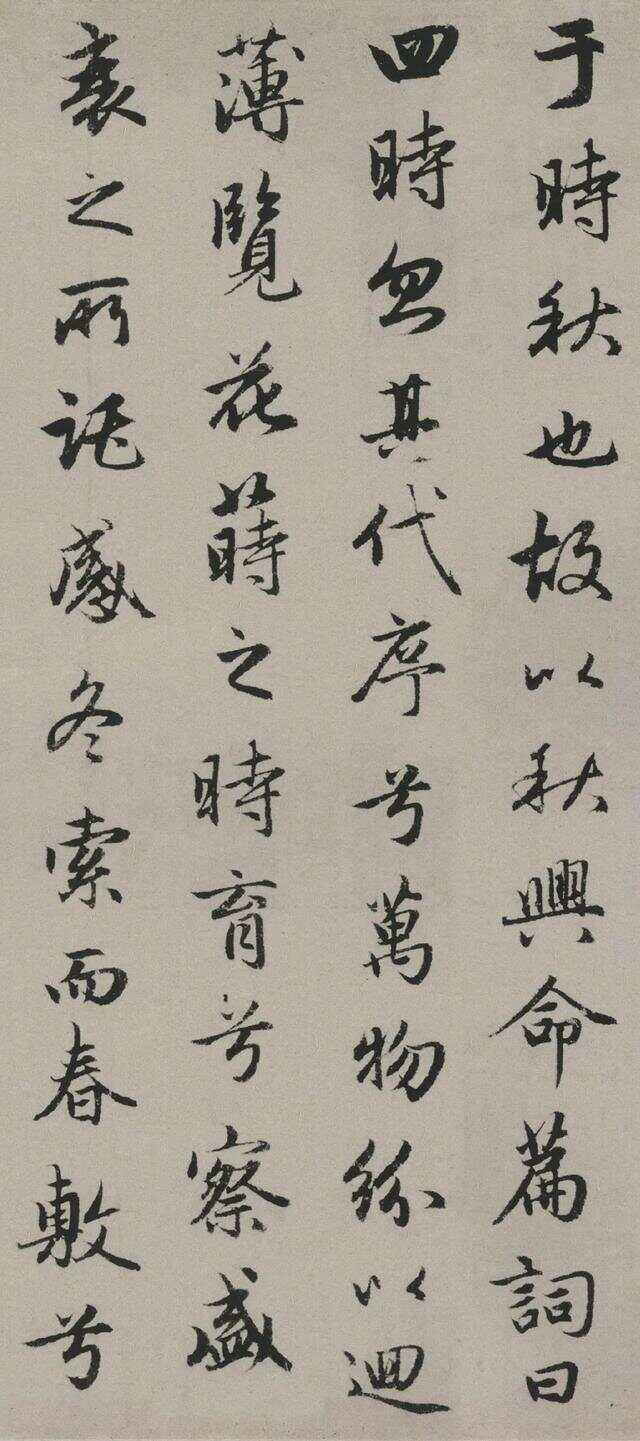 于時秋也故以秋興命篇詞曰
四時忽其代序兮萬物紛以迴
薄覽花蒔之時育兮察盛
衰之所託感冬索而春敷兮